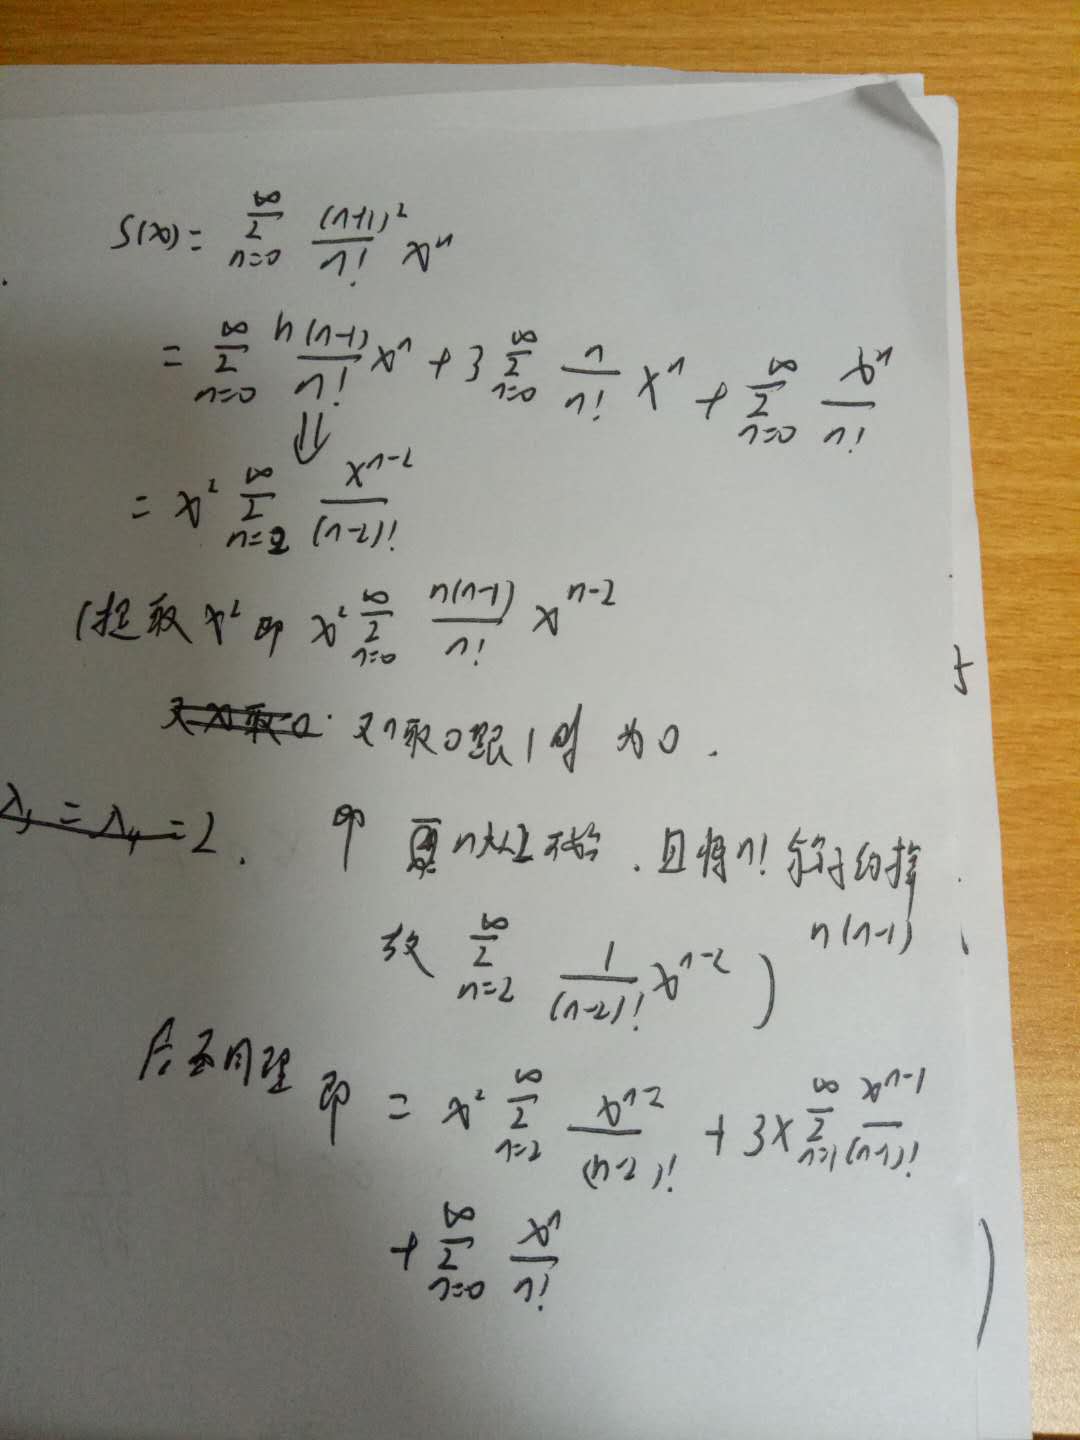 S(x) = ∑_{n=0}^{∞} (n+1)²/n! xⁿ
= ∑_{n=0}^{∞} n(n-1)/n! xⁿ + 3 ∑_{n=0}^{∞} n/n! xⁿ + ∑_{n=0}^{∞} xⁿ/n!
⇓
= x² ∑_{n=2}^{∞} x^{n-2}/(n-2)!
(提取 x² 即 x² ∑_{n=0}^{∞} n(n-1)/n! x^{n-2}
又n取0跟1时 为0.
λ₃ = λ₄ = 2. 即 n从2开始. 且将n! 约掉
n(n-1)
故 ∑_{n=2}^{∞} 1/(n-2)! x^{n-2} )
后面同理 即 = x² ∑_{n=2}^{∞} x^{n-2}/(n-2)! + 3x ∑_{n=1}^{∞} x^{n-1}/(n-1)!
+ ∑_{n=0}^{∞} xⁿ/n!